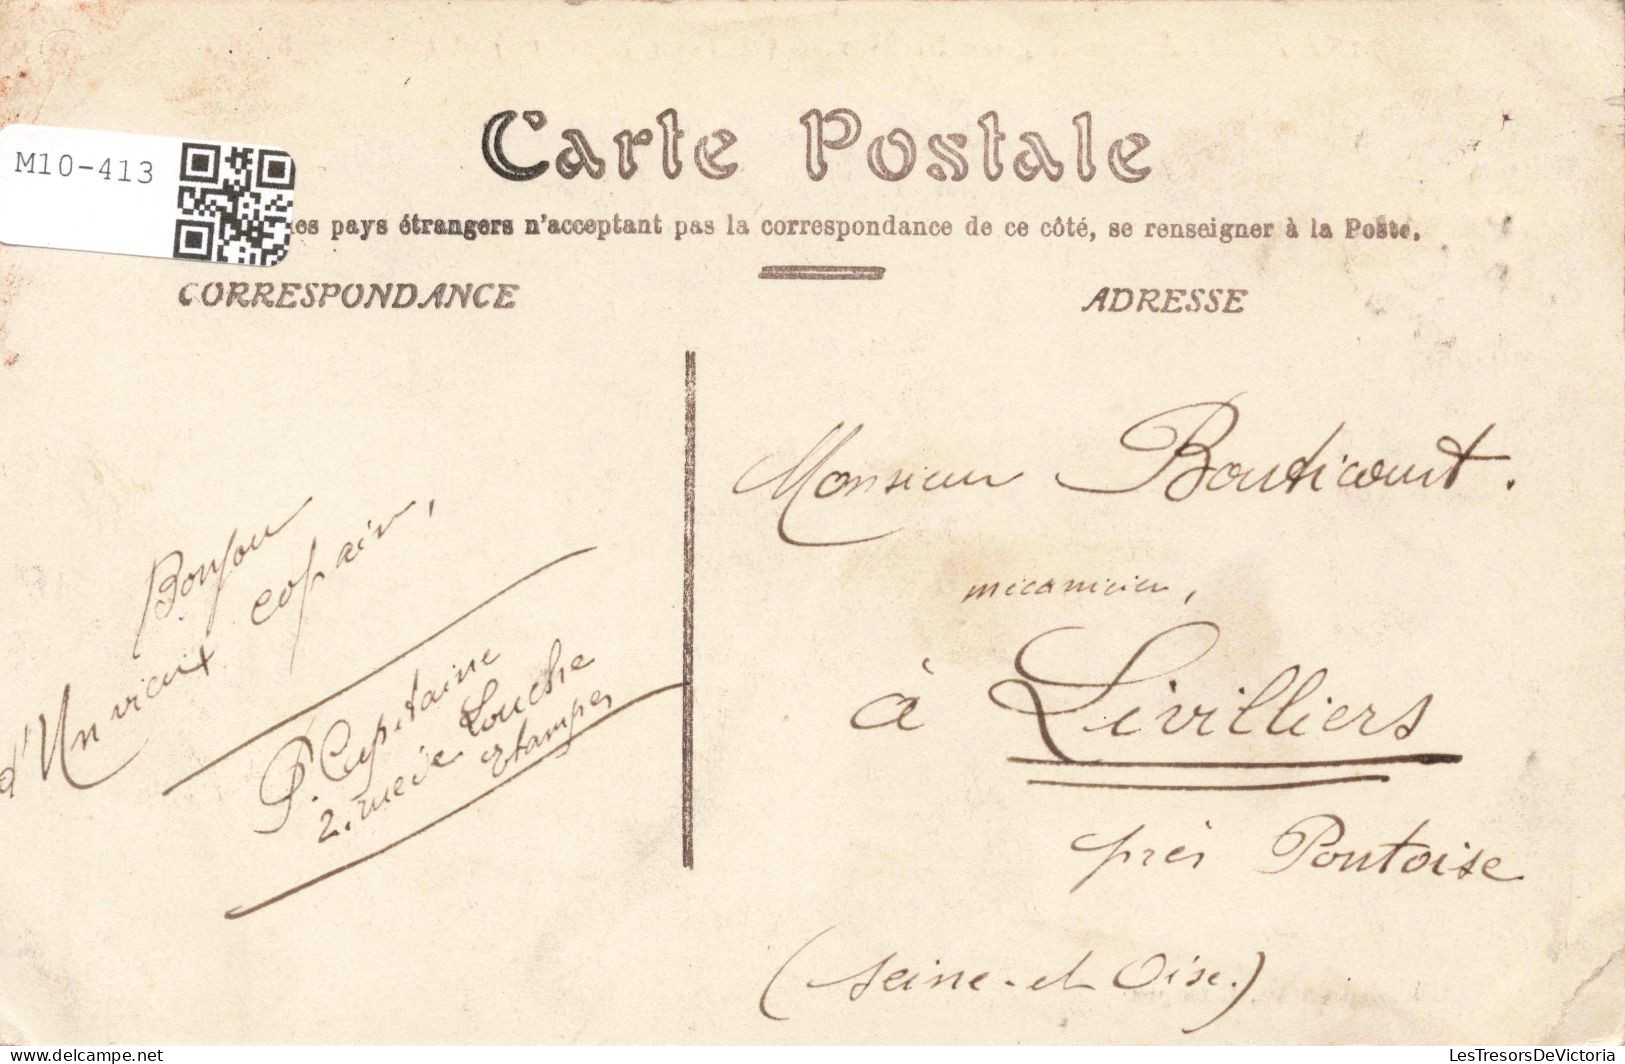 M10-413
Carte Postale
les pays étrangers n'acceptant pas la correspondance de ce côté, se renseigner à la Poste.
CORRESPONDANCE
ADRESSE
Bonjour
d'Un vieux copain,
P. Capitaine
2. rue de Louche
Etampes
Monsieur Bouticourt.
mécanicien,
à Livilliers
près Pontoise
(Seine-et Oise.)
Website : www.delcampe.net user :
LesTresorsDeVictoria